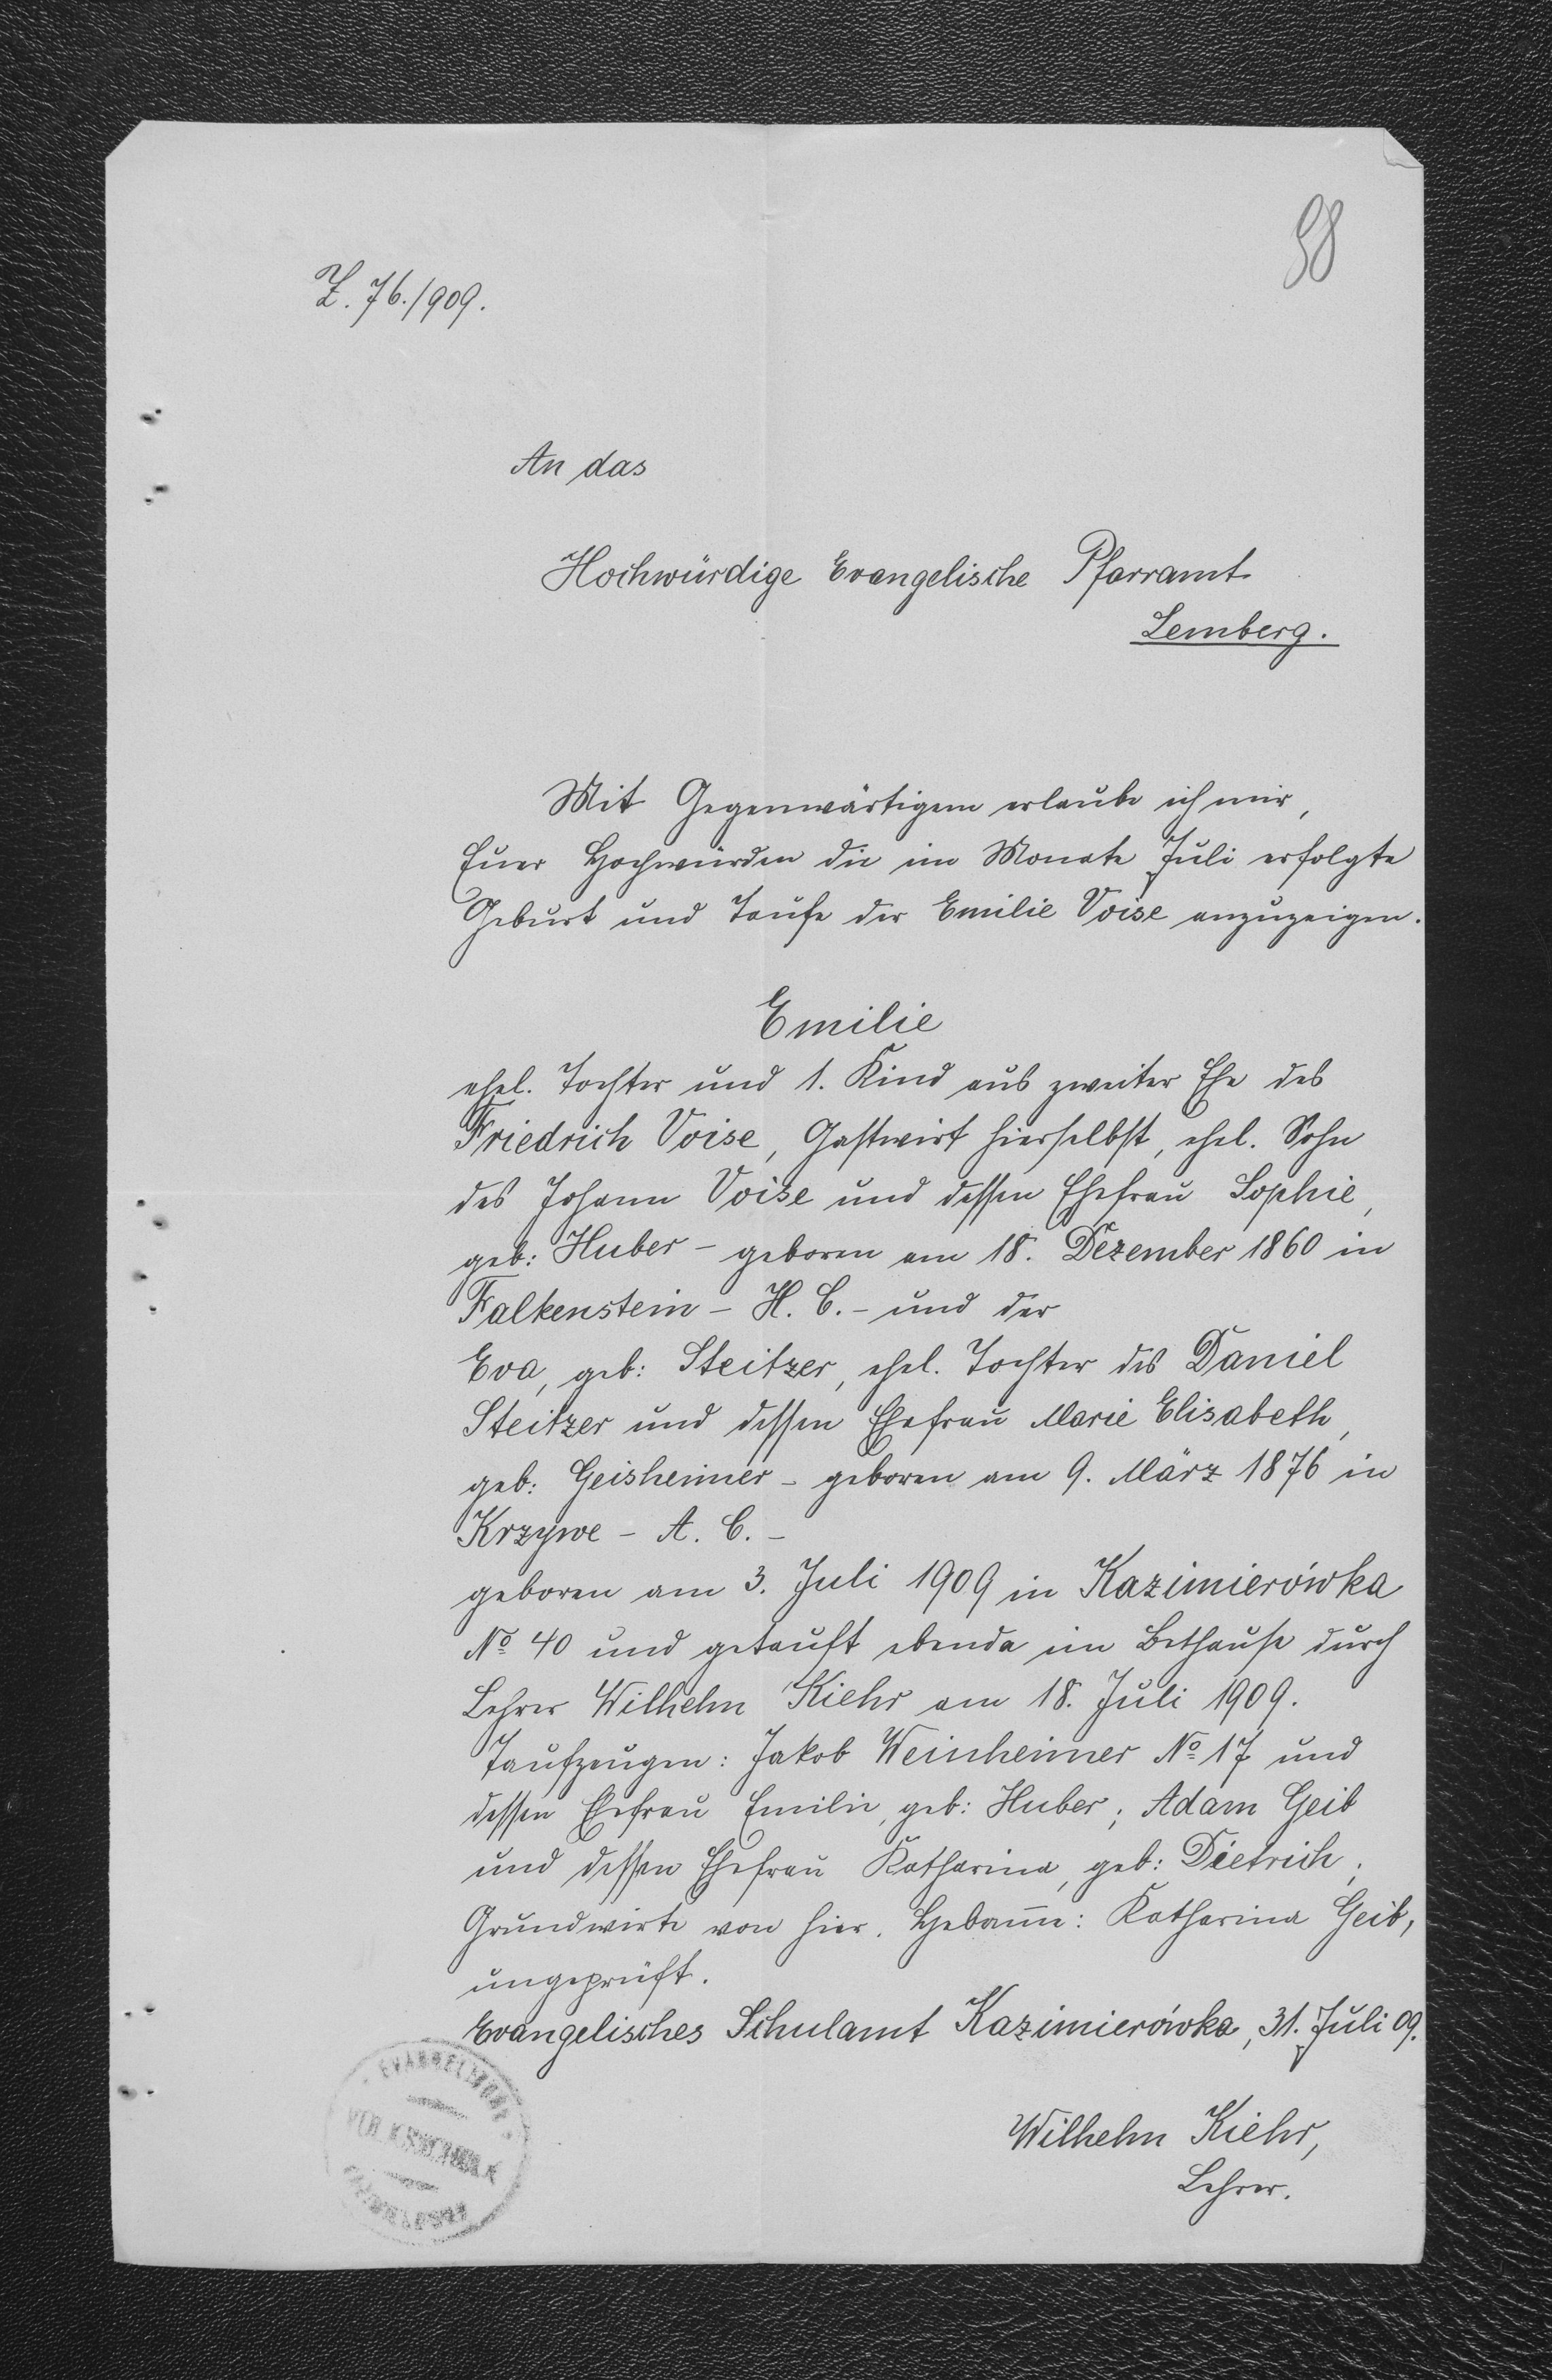 98
Z. 76./909.
An das
Hochwürdige Evangelische Pfarramt
Lemberg.
Mit Gegenwärtigem erlaube ich mir,
Euer Hochwürden die im Monate Juli erfolgte
Geburt und Taufe der Emilie Voise anzuzeigen.
Emilie
ehel. Tochter und 1. Kind aus zweiter Ehe des
Friedrich Voise, Gastwirt hierselbst, ehel. Sohn
des Johann Voise und dessen Ehefrau Sophie,
geb: Huber - geboren am 18. Dezember 1860 in
Falkenstein - H. C. - und der
Eva, geb: Steitzer, ehel. Tochter des Daniel
Steitzer und dessen Ehefrau Marie Elisabeth,
geb: Geisheimer - geboren am 9. März 1876 in
Krzywe - A. C. -
geboren am 3. Juli 1909 in Kazimierówka
No 40 und getauft ebenda im Bethause durch
Lehrer Wilhelm Kiehr am 18. Juli 1909.
Taufzeugen: Jakob Weinheimer No 17 und
dessen Ehefrau Emilie, geb: Huber; Adam Geib
und dessen Ehefrau Katharina, geb: Dietrich,
Grundwirte von hier. Hebam̄e: Katharina Geib,
ungeprüft.
Evangelisches Schulamt Kazimierówka, 31. Juli 09.
EVANGELISCHE
VOLKSSCHULE
Wilhelm Kiehr,
Lehrer.